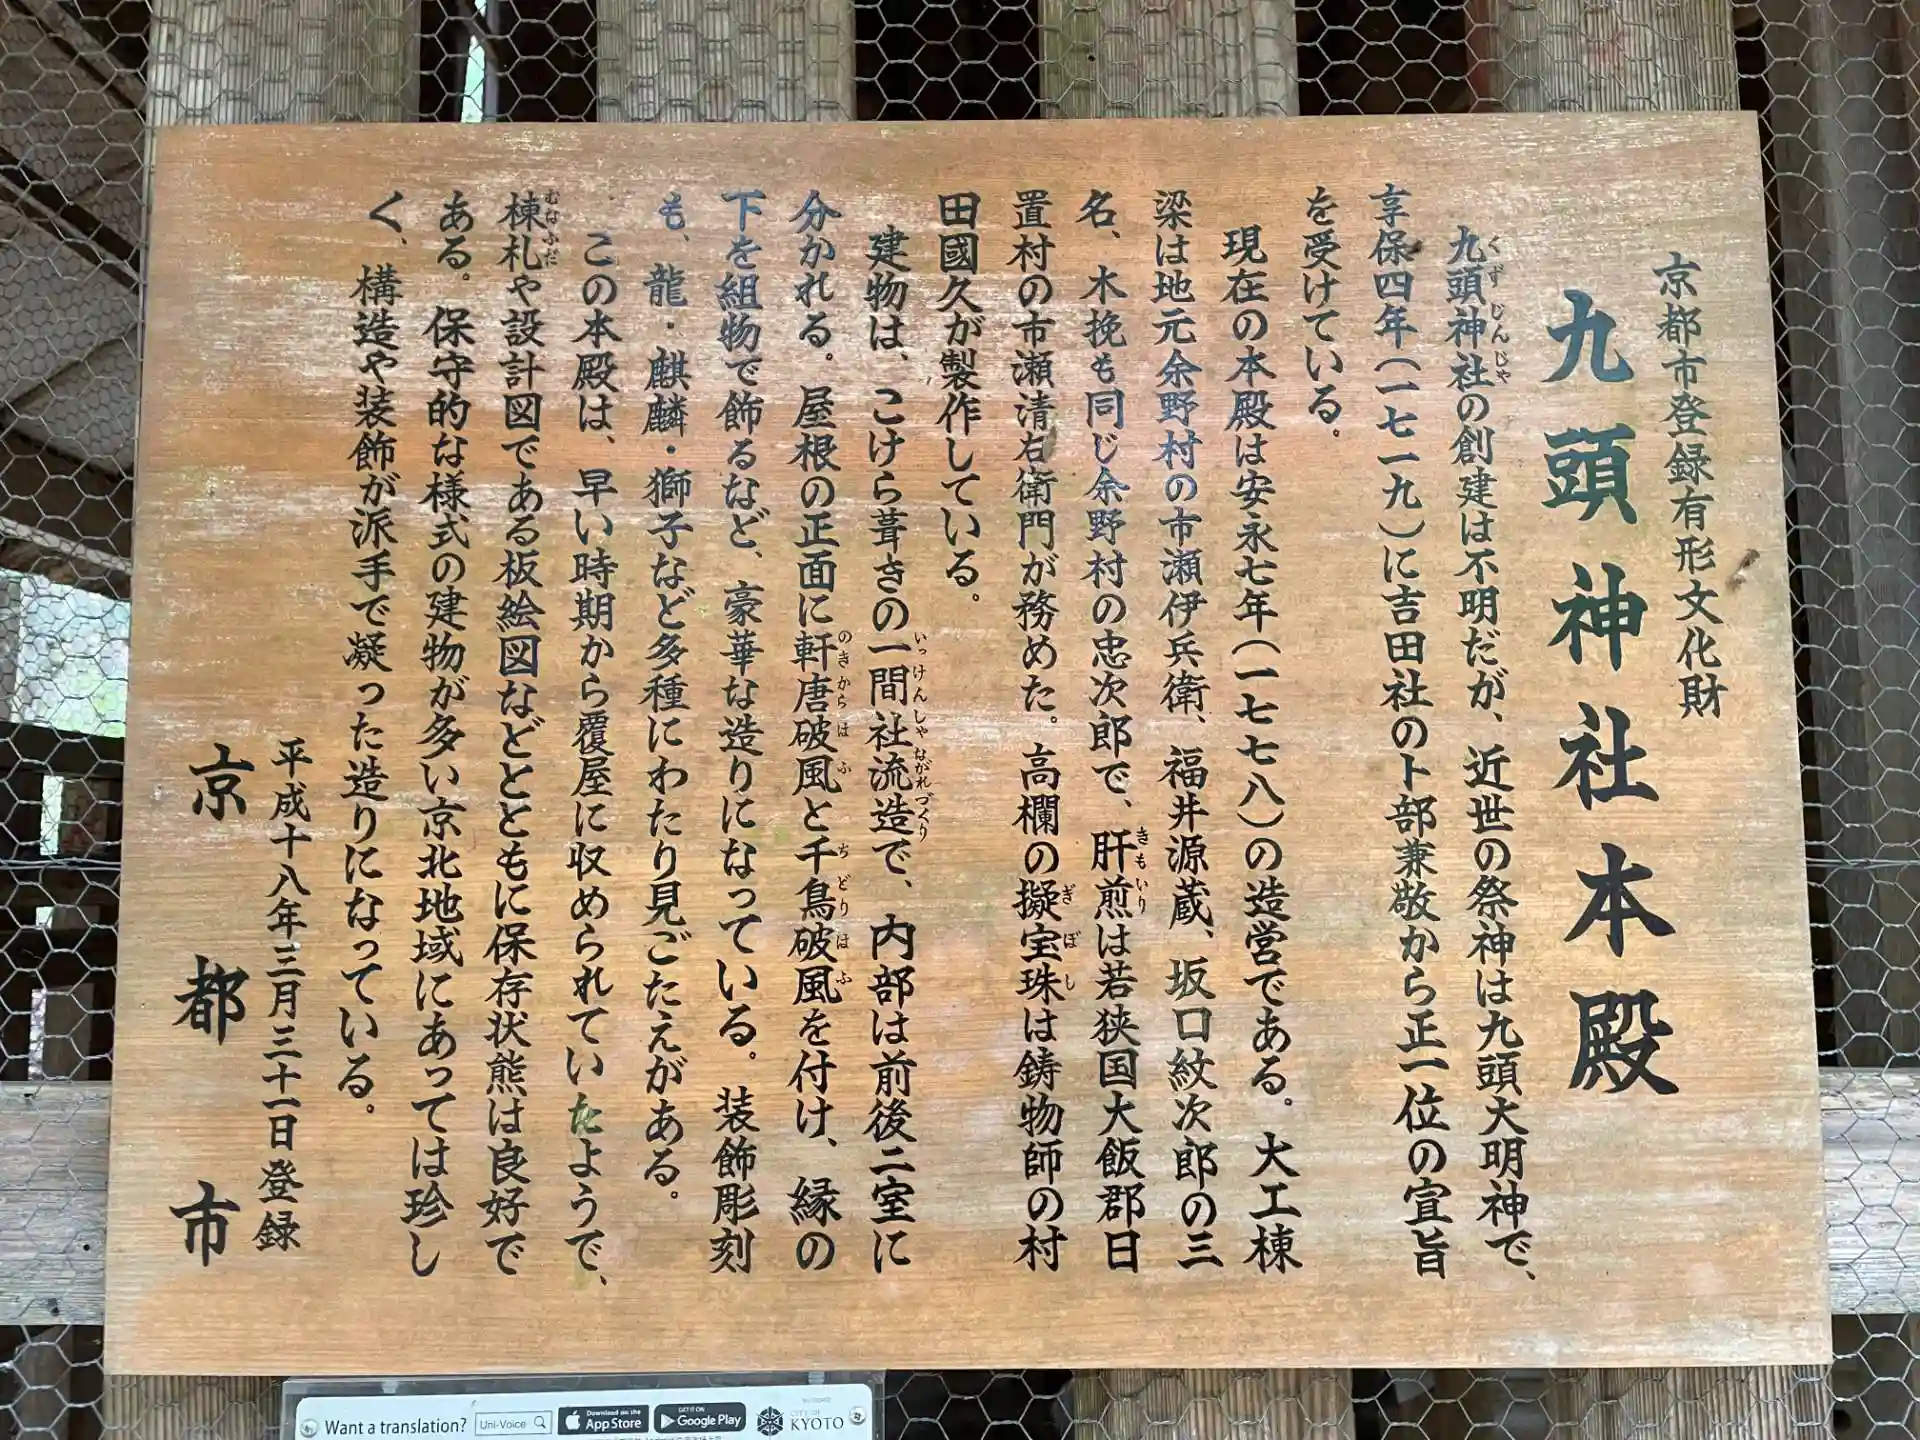 京都市登録有形文化財
九頭神社本殿
九頭神社の創建は不明だが、近世の祭神は九頭大明神で、
くず じんじゃ
享保四年(一七一九)に吉田社の卜部兼敬から正一位の宣旨
を受けている。
現在の本殿は安永七年(一七七八)の造営である。大工棟
梁は地元余野村の市瀬伊兵衛、福井源蔵、坂口紋次郎の三
名、木挽も同じ余野村の忠次郎で、肝煎は若狭国大飯郡日
きもいり
置村の市瀬清右衛門が務めた。高欄の擬宝珠は鋳物師の村
ぎぼし
田國久が製作している。
建物は、こけら葺きの一間社流造で、内部は前後二室に
いっけんしゃながれづくり
分かれる。屋根の正面に軒唐破風と千鳥破風を付け、縁の
のきからはふ ちどりはふ
下を組物で飾るなど、豪華な造りになっている。装飾彫刻
も、龍・麒麟・獅子など多種にわたり見ごたえがある。
この本殿は、早い時期から覆屋に収められていたようで、
棟札や設計図である板絵図などとともに保存状熊は良好で
むなふだ
ある。保守的な様式の建物が多い京北地域にあっては珍し
く、構造や装飾が派手で凝った造りになっている。
平成十八年三月三十一日登録
京都市
Want a translation? Uni-Voice Download on the App Store GET IT ON Google Play CITY OF KYOTO